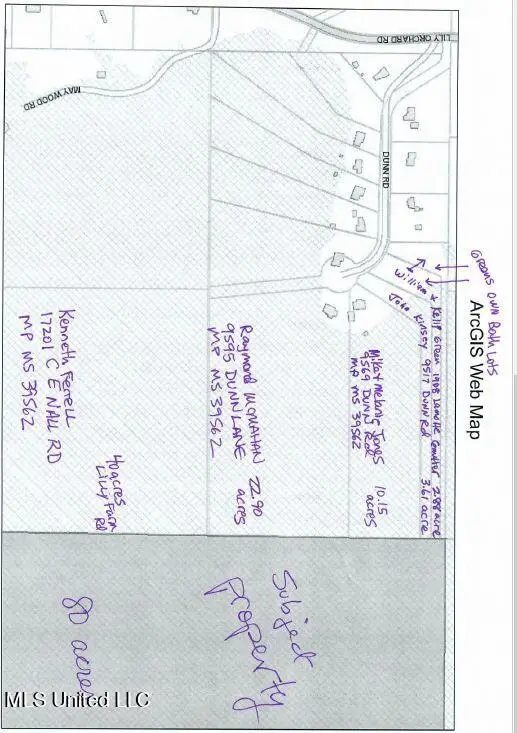 ArcGIS Web Map
LILY ORCHARD RD
MAYWOOD RD
DUNN RD
Greens OWN Both Lots
William & Kelly Green 2.88 acre
John Kinsey 9517 DUNN Rd 3.61 acre
Mike & Melanie Jones 10.15
9569 DUNN Rd acres
MP MS 39562
Raymond McMAHAN 22.90
9595 DUNN LANE acres
MP MS 39562
Kenneth Ferrell
17201 C E NALL RD
MP MS 39562
40 acres
Lilly Farm
Rd
Subject
property
80 acres
MLS United LLC